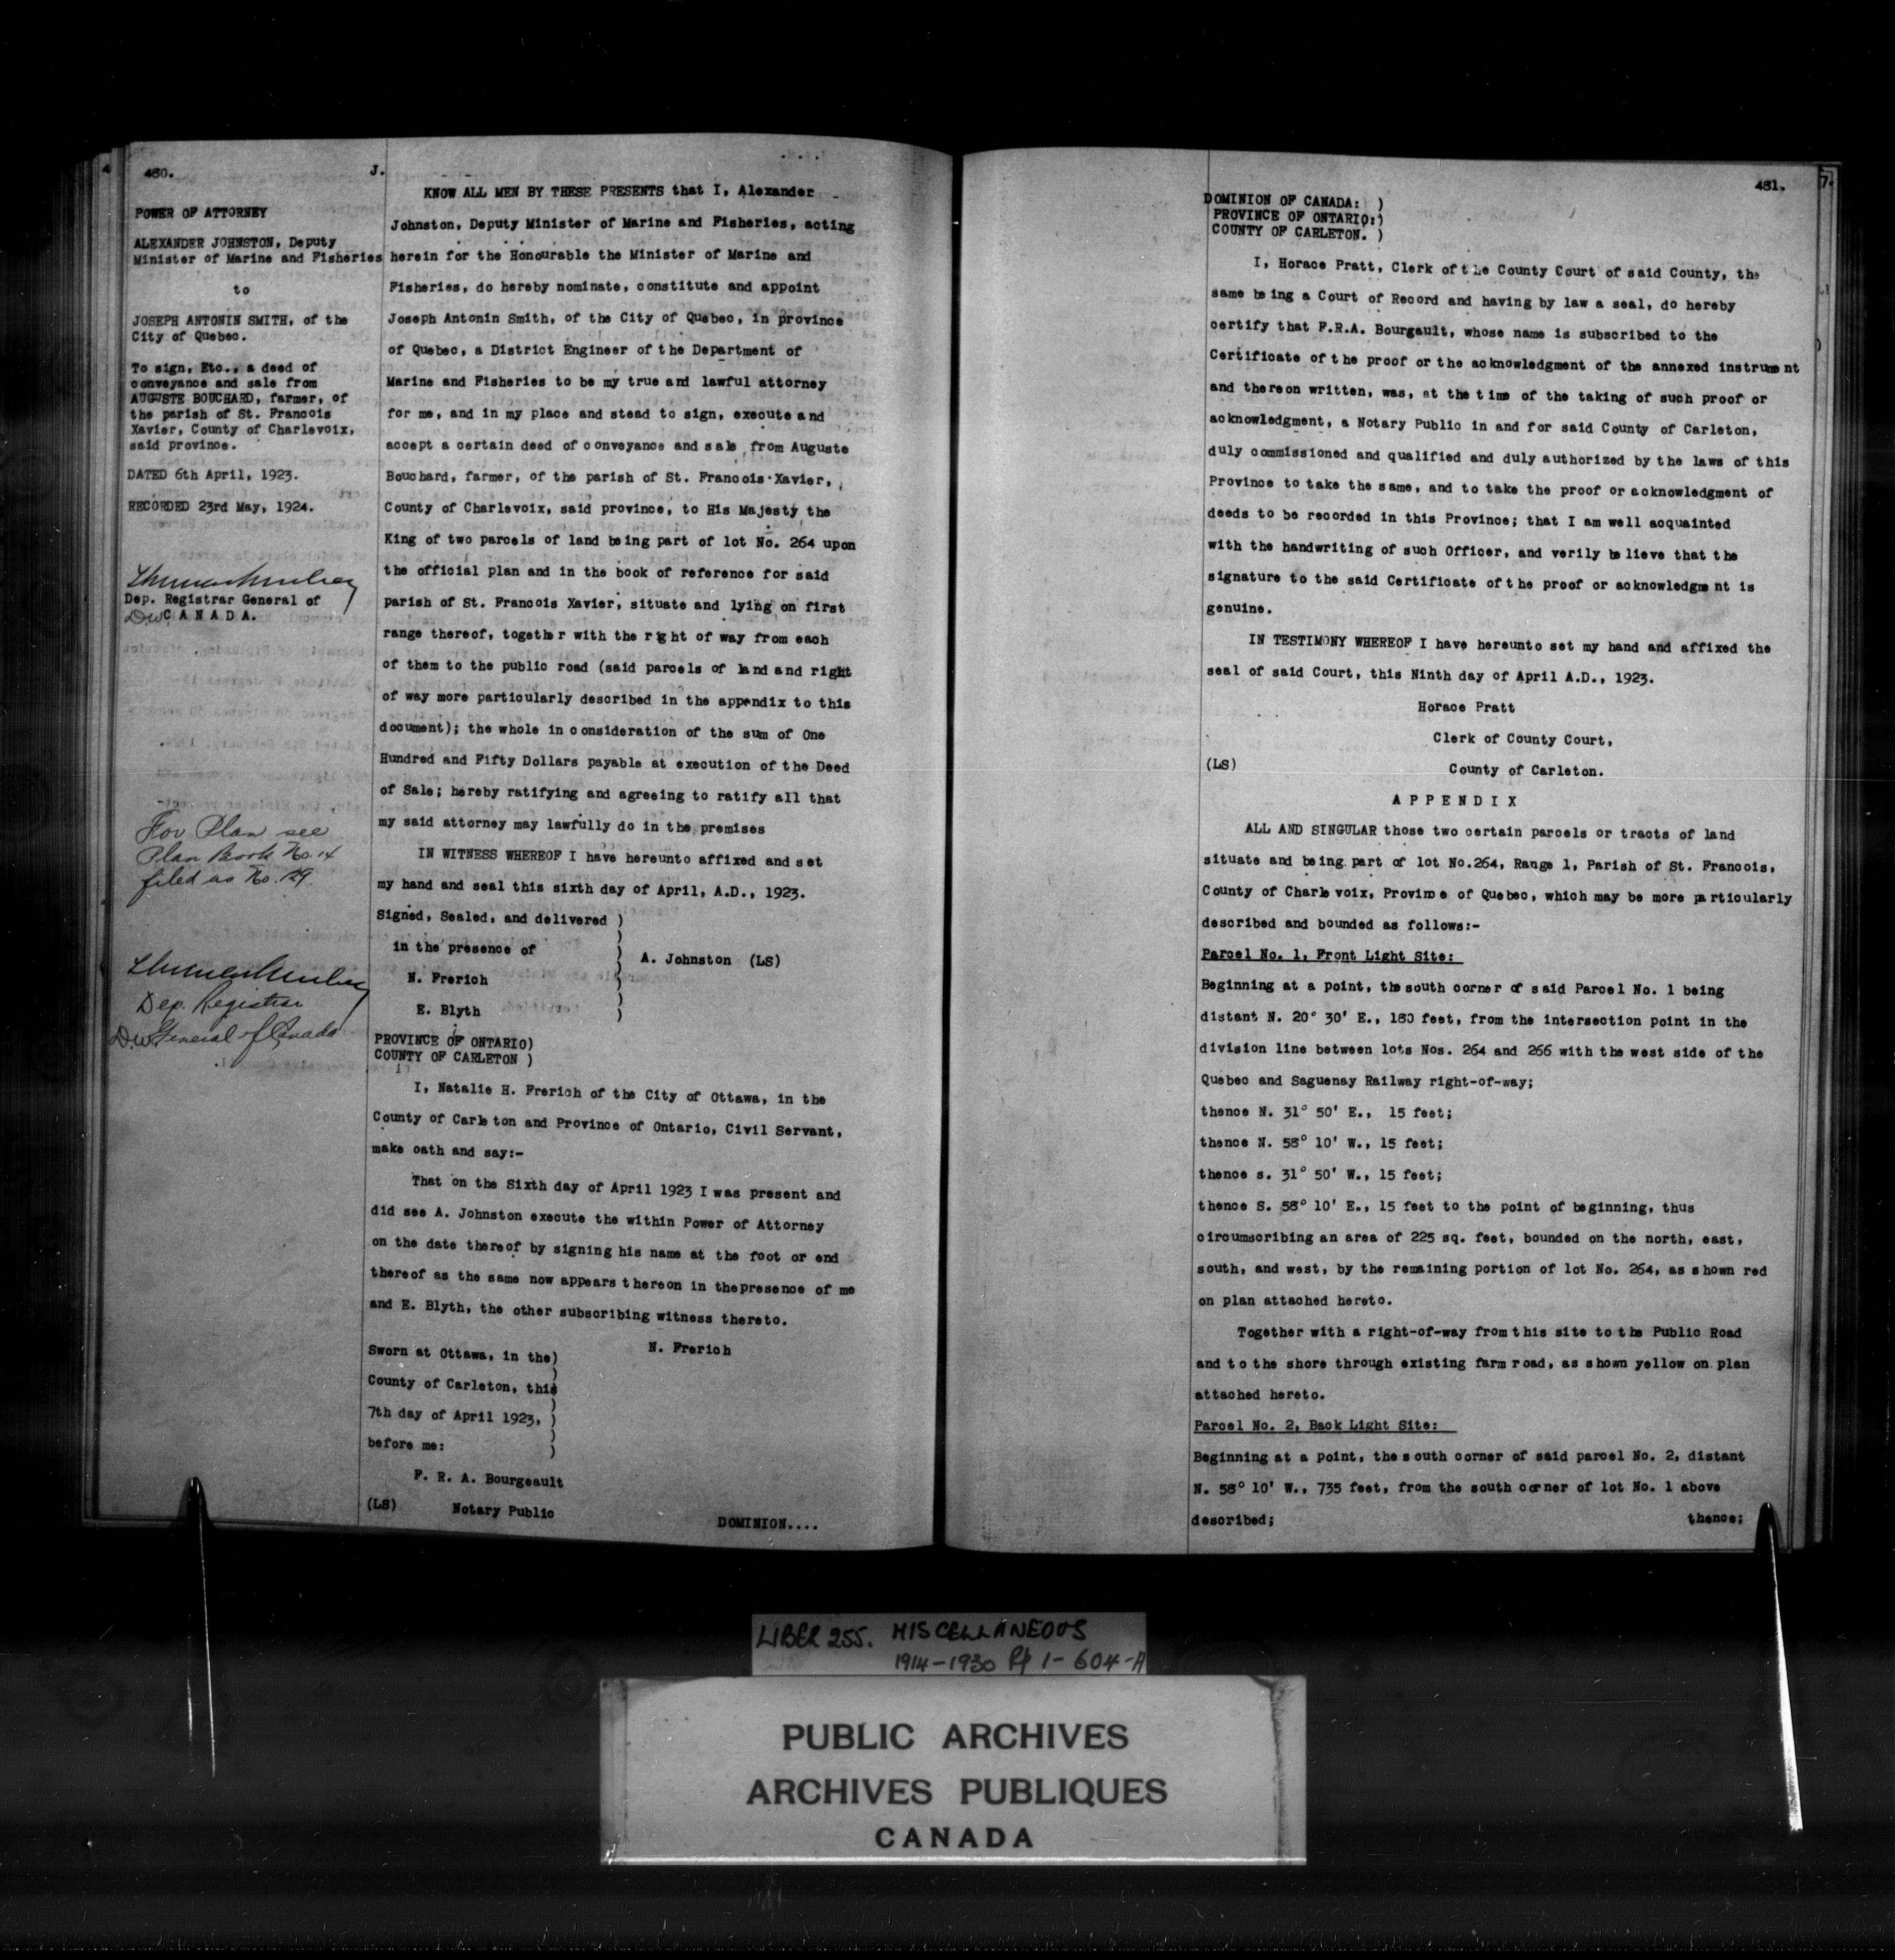 480.
J.
POWER OF ATTORNEY
ALEXANDER JOHNSTON, Deputy
Minister of Marine and Fisheries
to
JOSEPH ANTONIN SMITH, of the
City of Quebec.
To sign, Etc., a deed of
conveyance and sale from
AUGUSTE BOUCHARD, farmer, of
the parish of St. Francois
Xavier, County of Charlevoix,
said province.
DATED 6th April, 1923.
RECORDED 23rd May, 1924.
Dep. Registrar General of
DW CANADA.
For Plan see
Plan Book No. 14
filed as No. 129.
Dep. Registrar
DW General of Canada
KNOW ALL MEN BY THESE PRESENTS that I, Alexander
Johnston, Deputy Minister of Marine and Fisheries, acting
herein for the Honourable the Minister of Marine and
Fisheries, do hereby nominate, constitute and appoint
Joseph Antonin Smith, of the City of Quebec, in province
of Quebec, a District Engineer of the Department of
Marine and Fisheries to be my true and lawful attorney
for me, and in my place and stead to sign, execute and
accept a certain deed of conveyance and sale from Auguste
Bouchard, farmer, of the parish of St. Francois Xavier,
County of Charlevoix, said province, to His Majesty the
King of two parcels of land being part of lot No. 264 upon
the official plan and in the book of reference for said
parish of St. Francois Xavier, situate and lying on first
range thereof, together with the right of way from each
of them to the public road (said parcels of land and right
of way more particularly described in the appendix to this
document); the whole in consideration of the sum of One
Hundred and Fifty Dollars payable at execution of the Deed
of Sale; hereby ratifying and agreeing to ratify all that
my said attorney may lawfully do in the premises
IN WITNESS WHEREOF I have hereunto affixed and set
my hand and seal this sixth day of April, A.D., 1923.
Signed, Sealed, and delivered )
in the presence of )
A. Johnston (LS)
N. Frerich )
E. Blyth )
PROVINCE OF ONTARIO)
COUNTY OF CARLETON )
I, Natalie H. Frerich of the City of Ottawa, in the
County of Carleton and Province of Ontario, Civil Servant,
make oath and say:-
That on the Sixth day of April 1923 I was present and
did see A. Johnston execute the within Power of Attorney
on the date thereof by signing his name at the foot or end
thereof as the same now appears thereon in thepresence of me
and E. Blyth, the other subscribing witness thereto.
N. Frerich
Sworn at Ottawa, in the)
County of Carleton, this)
7th day of April 1923, )
before me: )
F. R. A. Bourgeault
(LS) Notary Public
DOMINION....
481.
7.
DOMINION OF CANADA: )
PROVINCE OF ONTARIO:)
COUNTY OF CARLETON. )
I, Horace Pratt, Clerk of the County Court of said County, the
same being a Court of Record and having by law a seal, do hereby
certify that F.R.A. Bourgault, whose name is subscribed to the
Certificate of the proof or the acknowledgment of the annexed instrument
and thereon written, was, at the time of the taking of such proof or
acknowledgment, a Notary Public in and for said County of Carleton,
duly commissioned and qualified and duly authorized by the laws of this
Province to take the same, and to take the proof or acknowledgment of
deeds to be recorded in this Province; that I am well acquainted
with the handwriting of such Officer, and verily believe that the
signature to the said Certificate of the proof or acknowledgment is
genuine.
IN TESTIMONY WHEREOF I have hereunto set my hand and affixed the
seal of said Court, this Ninth day of April A.D., 1923.
Horace Pratt
Clerk of County Court,
(LS) County of Carleton.
APPENDIX
ALL AND SINGULAR those two certain parcels or tracts of land
situate and being part of lot No.264, Range 1, Parish of St. Francois,
County of Charlevoix, Province of Quebec, which may be more particularly
described and bounded as follows:-
Parcel No. 1, Front Light Site:
Beginning at a point, the south corner of said Parcel No. 1 being
distant N. 20° 30' E., 180 feet, from the intersection point in the
division line between lots Nos. 264 and 266 with the west side of the
Quebec and Saguenay Railway right-of-way;
thence N. 31° 50' E., 15 feet;
thence N. 58° 10' W., 15 feet;
thence s. 31° 50' W., 15 feet;
thence S. 58° 10' E., 15 feet to the point of beginning, thus
circumscribing an area of 225 sq. feet, bounded on the north, east,
south, and west, by the remaining portion of lot No. 264, as shown red
on plan attached hereto.
Together with a right-of-way from this site to the Public Road
and to the shore through existing farm road, as shown yellow on plan
attached hereto.
Parcel No. 2, Back Light Site:
Beginning at a point, the south corner of said parcel No. 2, distant
N. 58° 10' W., 735 feet, from the south corner of lot No. 1 above
described; thence;
LIBER 255. MISCELLANEOUS
1914-1930 Pp 1-604-A
PUBLIC ARCHIVES
ARCHIVES PUBLIQUES
CANADA